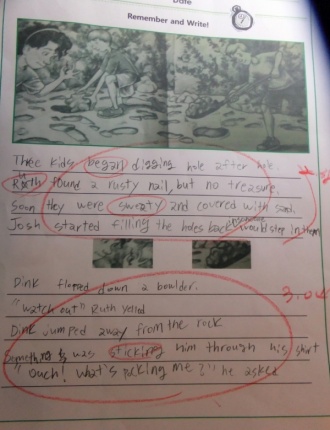 Date
Remember and Write!
Thee kids began digging hole after hole.
Ruth found a rusty nail, but no treasure.
Soon they were sweaty and covered with sand.
Josh started filling the holes back would step in them
Dink flopped down a boulder.
"Watch out" Ruth yelled
Dink jumped away from the rock
Something was sticking him through his shirt
"Ouch! What's poking me?" he asked